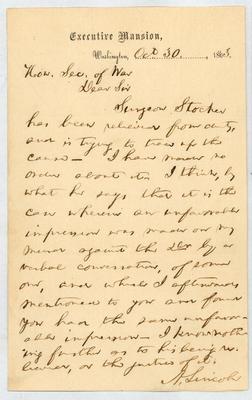 Executive Mansion,
Washington, Oct 30, 1863
Hon. Sec. of War
Dear Sir
Surgeon Stocker
has been relieved from duty,
and is trying to trace up the
cause— I have made no
order about it. I think, by
what he says that it is the
case wherein an unfavorable
impression was made on my
mind against the Dr. by a
verbal conversation, of some
one, and which I afterwards
mentioned to you and found
you had the same unfavor-
able impression— I know noth-
ing further as to his being re-
lieved, or the justice of it.
A. Lincoln